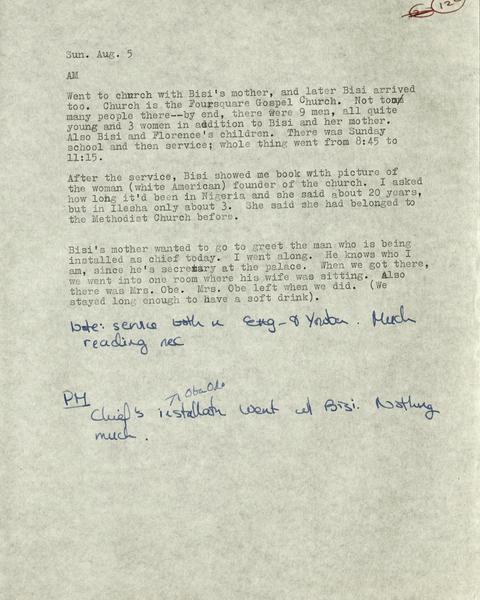 122
Sun. Aug. 5
AM
Went to church with Bisi's mother, and later Bisi arrived
too. Church is the Foursquare Gospel Church. Not too
many people there--by end, there were 9 men, all quite
young and 3 women in addition to Bisi and her mother.
Also Bisi and Florence's children. There was Sunday
school and then service; whole thing went from 8:45 to
11:15.
After the service, Bisi showed me book with picture of
the woman (white American) founder of the church. I asked
how long it'd been in Nigeria and she said about 20 years,
but in Ilesha only about 3. She said she had belonged to
the Methodist Church before.
Bisi's mother wanted to go to greet the man who is being
installed as chief today. I went along. He knows who I
am, since he's secretary at the palace. When we got there,
we went into one room where his wife was sitting. Also
there was Mrs. Obe. Mrs. Obe left when we did. (We
stayed long enough to have a soft drink).
Note: service both in Eng- & Yoruba. Much
reading
PM
Oba Odo
Chief's installatn went w/ Bisi. Nothing
much.